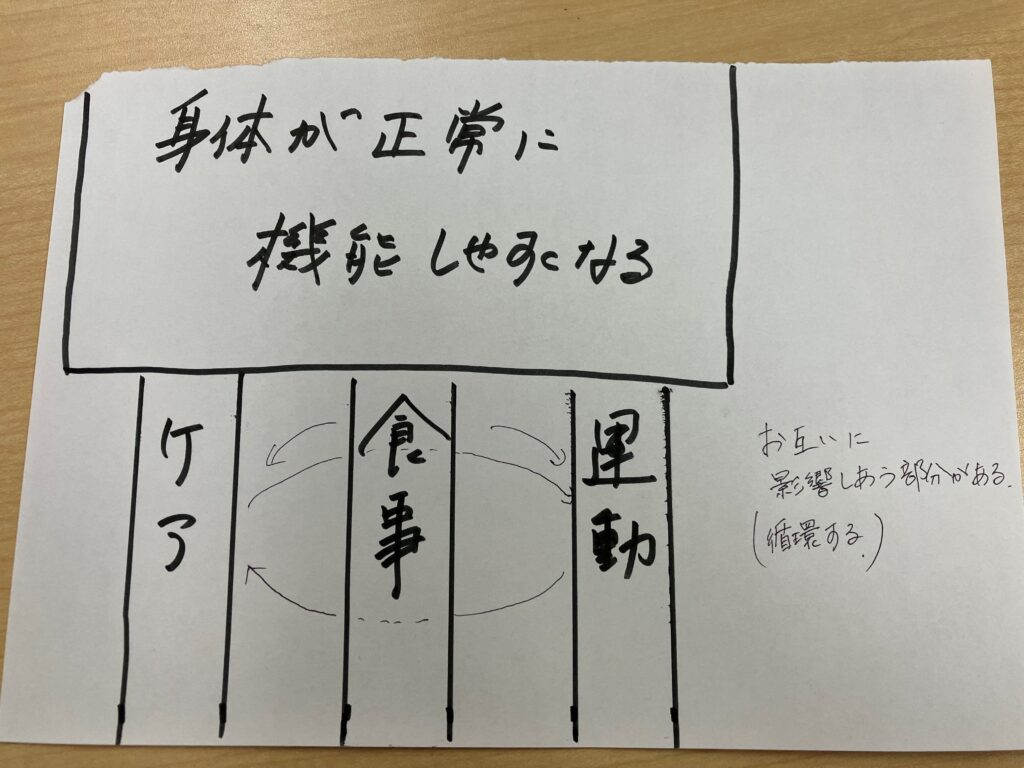 身体が正常に
機能しやすくなる
ケア
食事
運動
お互いに
影響しあう部分がある.
(循環する.)